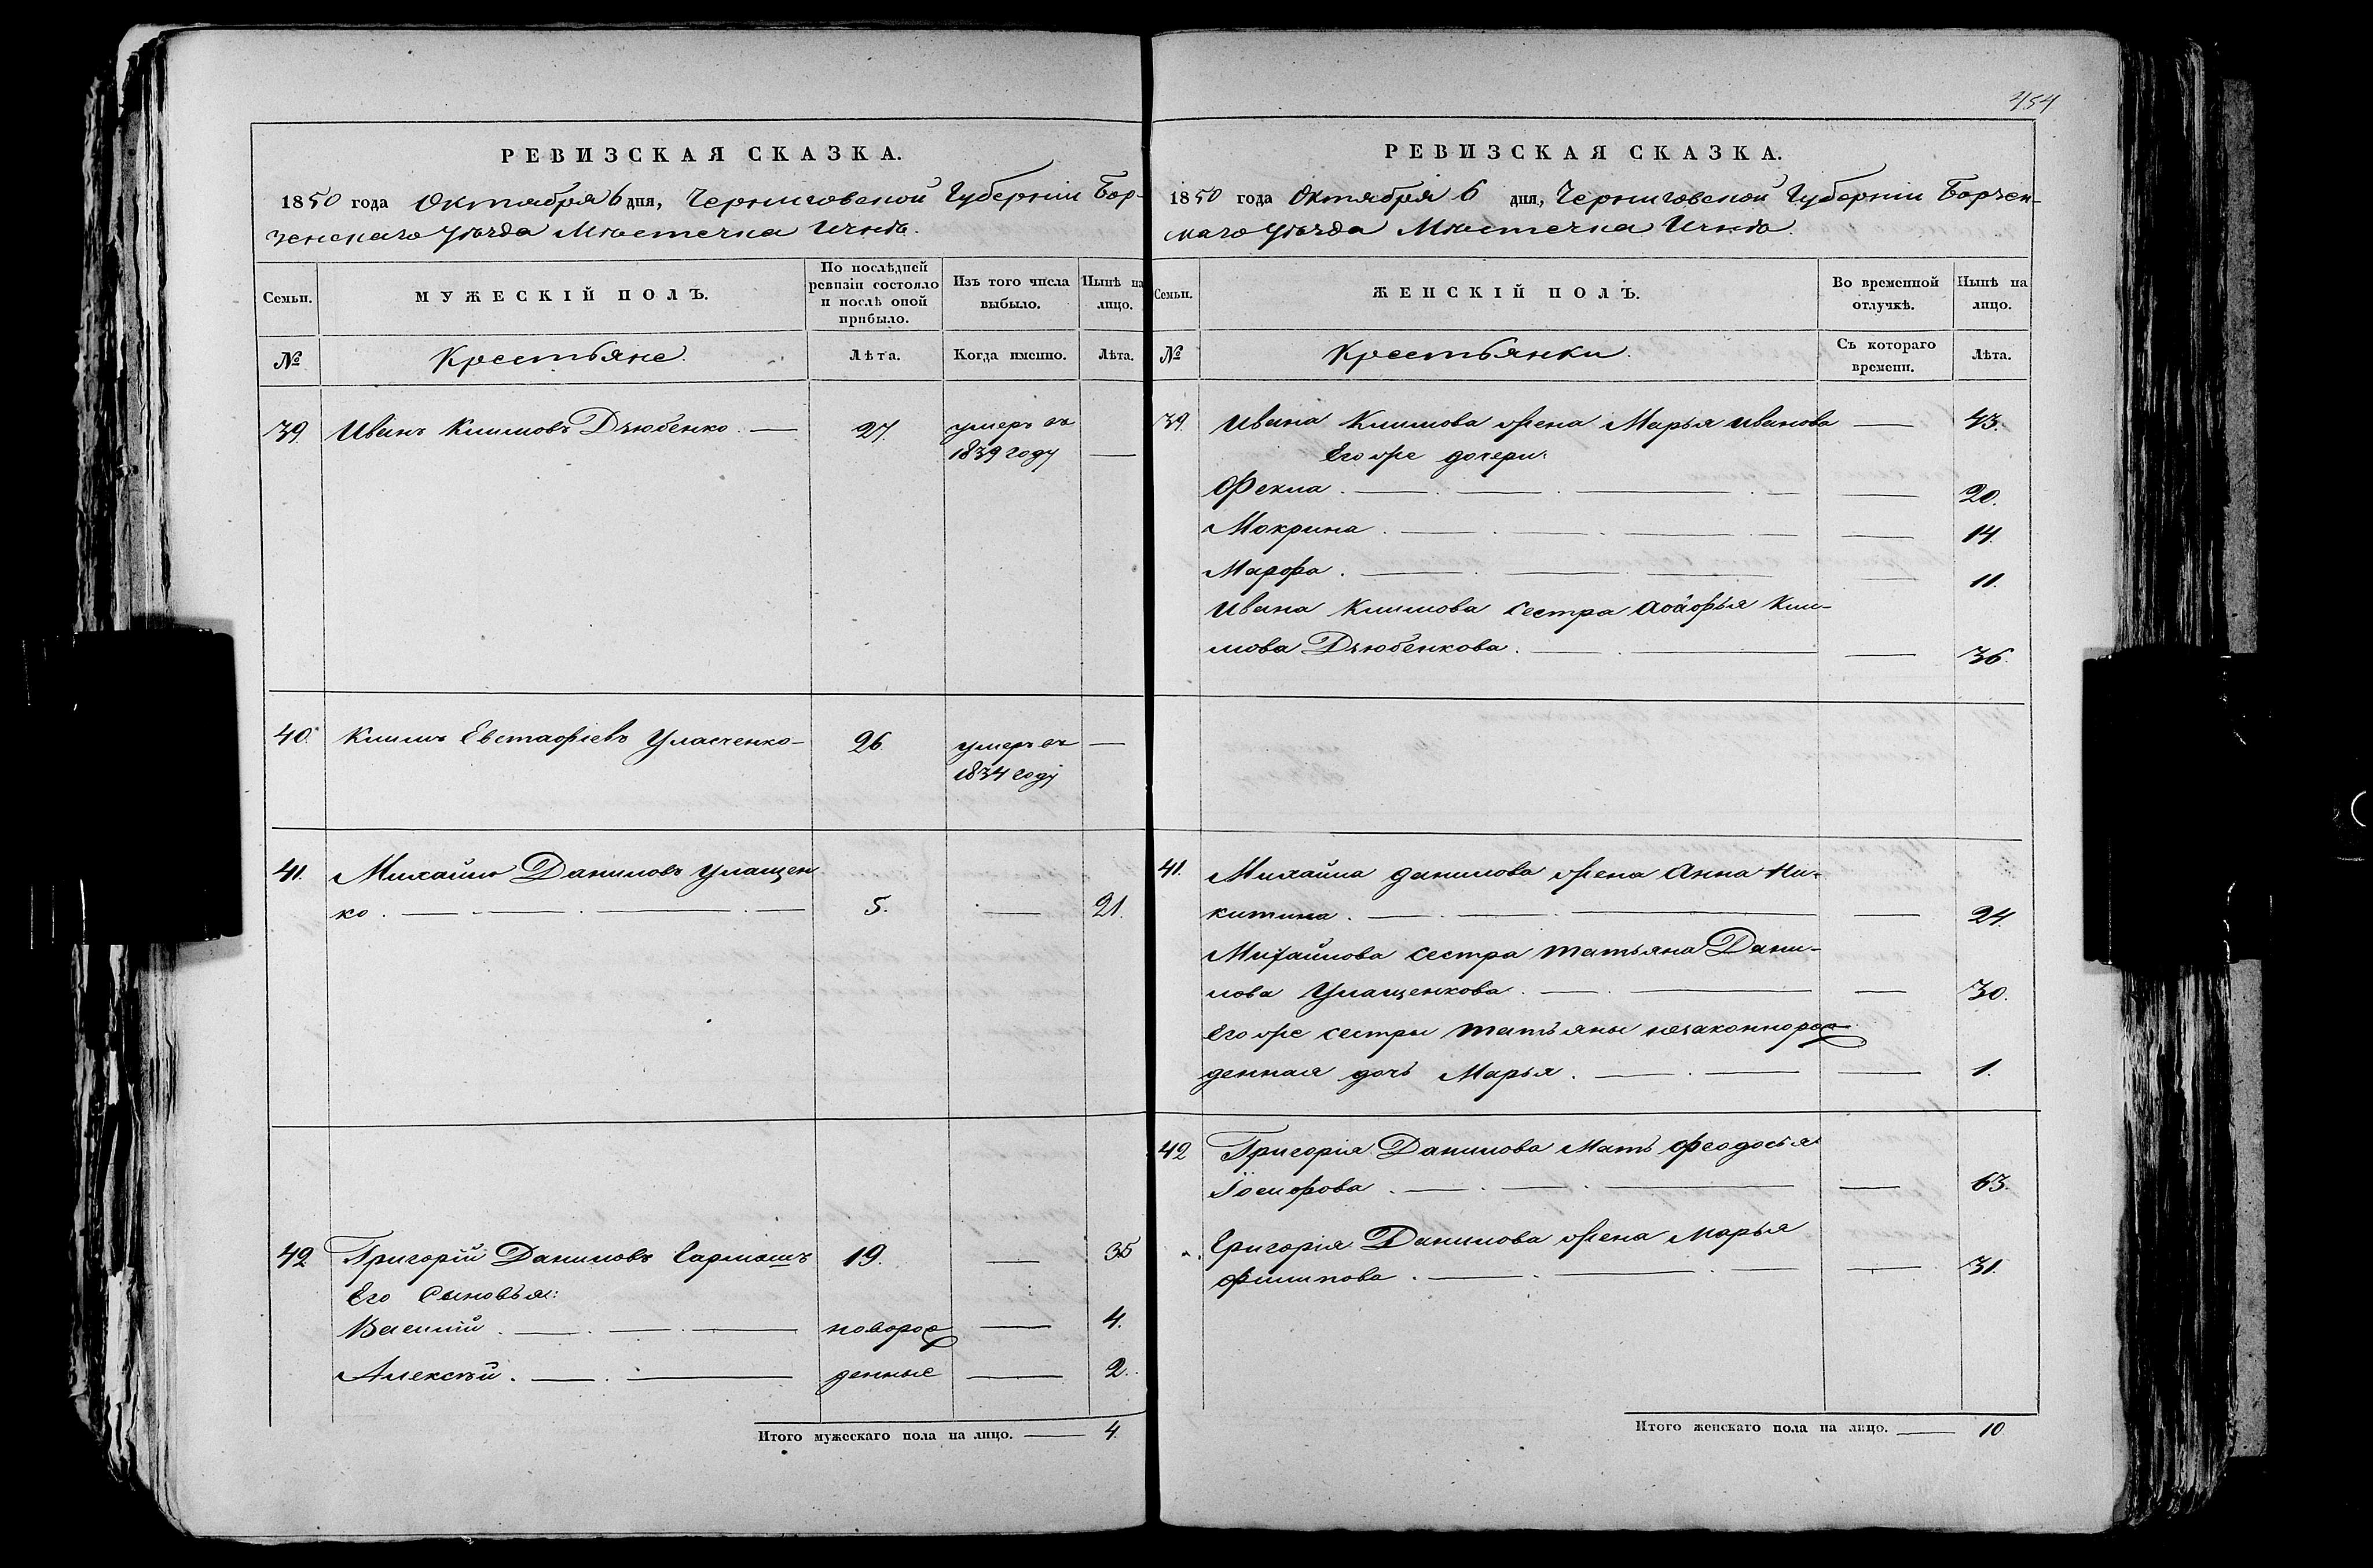 РЕВИЗСКАЯ СКАЗКА.
1850 года Октября 6 дня, Черниговской Губерніи Бор-
зенскаго Уѣзда Мѣстечка Ични.
Семьи. МУЖЕСКІЙ ПОЛЪ. По послѣдней ревизіи состояло и послѣ оной прибыло. Изъ того числа выбыло. Нынѣ на лицо.
№ Крестьяне. Лѣта. Когда именно. Лѣта.
39 Иванъ Климовъ Дзюбенко — 27. умеръ въ
1839 году —
40. Климъ Евстафіевъ Уласченко — 26. умеръ въ —
1834 году
41. Михайло Даниловъ Улащен
ко. — 5. — 21.
42 Григорій Даниловъ Гармашъ 19. — 35
Его Сыновья:
Василій. — новорож — 4.
Алексѣй. — денные — 2.
Итого мужескаго пола на лицо. — 4.
454
РЕВИЗСКАЯ СКАЗКА.
1850 года Октября 6 дня, Черниговской Губерніи Борзен-
скаго Уѣзда Мѣстечка Ични.
Семьи. ЖЕНСКІЙ ПОЛЪ. Во временной отлучкѣ. Нынѣ на лицо.
№ Крестьянки. Съ котораго времени. Лѣта.
39 Ивана Климова жена Марья Иванова — 43.
Его же дочери:
Фекла. — 20.
Мокрина. — 14.
Марфа. — 11.
Ивана Климова сестра Агафья Кли-
мова Дзюбенкова. — 36.
41. Михайла Данилова жена Анна Ни-
китина. — 24.
Михайлова сестра Татьяна Дани-
лова Улащенкова. — 30.
Его же сестры Татьяны незаконнорож
денная дочь Марья. — 1.
42 Григорія Данилова Мать Феодосья
Іосифова. — 63.
Григорія Данилова жена Марья
Филипова. — 31.
Итого женскаго пола на лицо. — 10